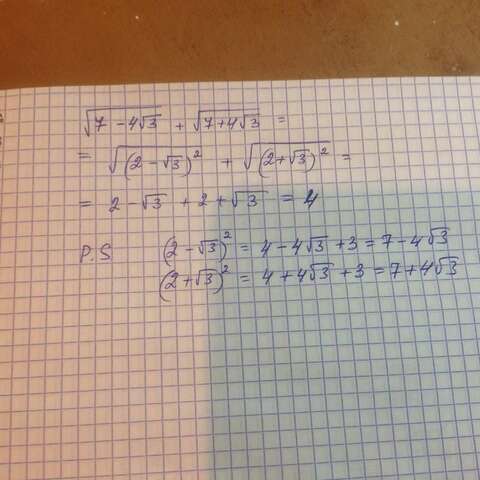 √(7 - 4√3) + √(7+4√3) =
= √((2 - √3)²) + √((2+√3)²) =
= 2 - √3 + 2 + √3 = 4
P.S (2 - √3)² = 4 - 4√3 + 3 = 7 - 4√3
(2 + √3)² = 4 + 4√3 + 3 = 7 + 4√3